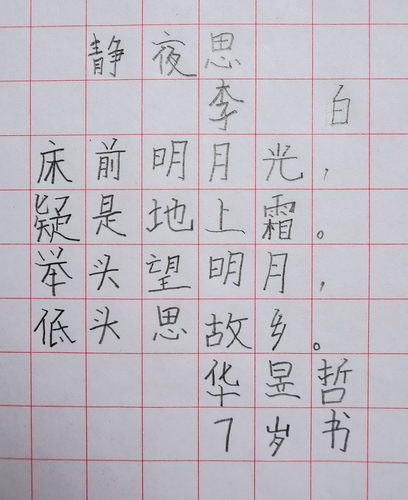 静夜思
李 白
床前明月光，
疑是地上霜。
举头望明月，
低头思故乡。
华昱哲
7岁书